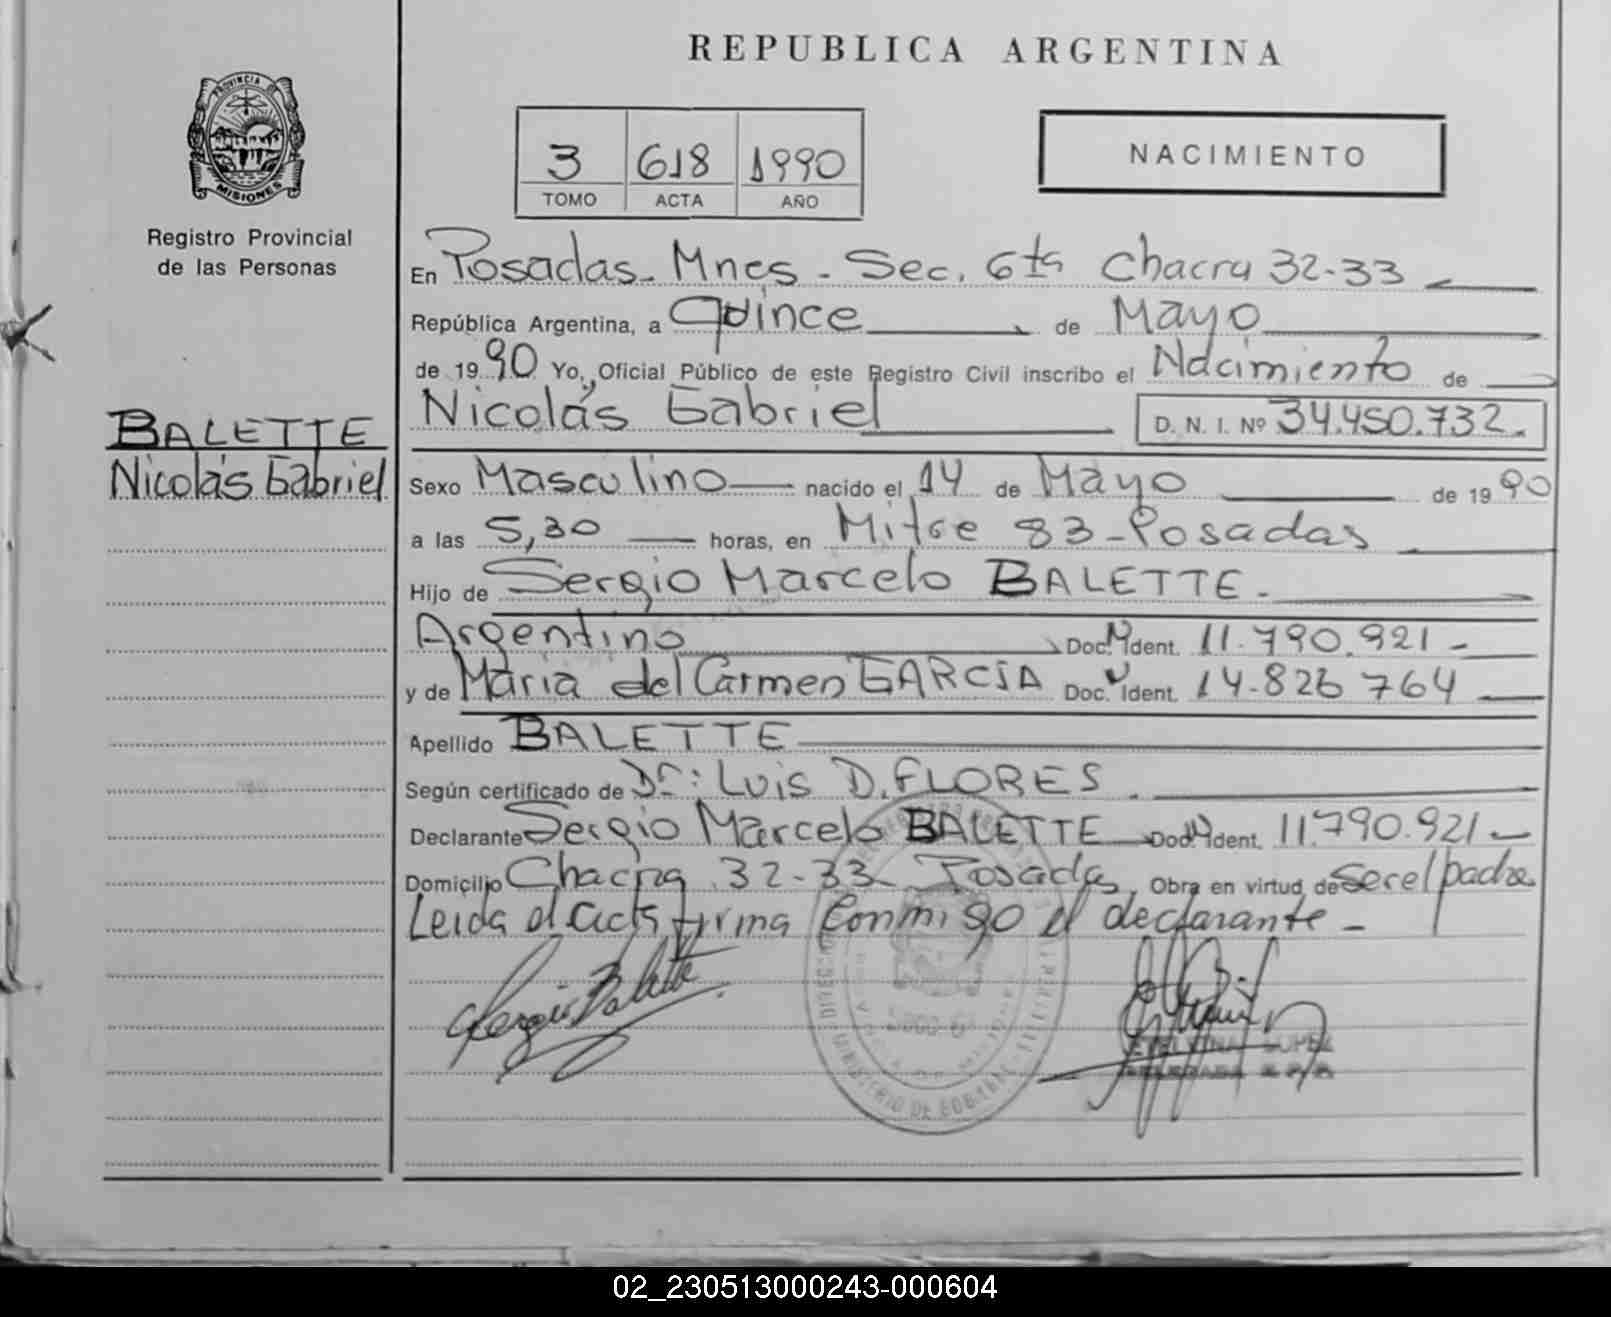 REPUBLICA ARGENTINA
PROVINCIA DE
MISIONES
Registro Provincial
de las Personas
3 618 1990
TOMO ACTA AÑO
NACIMIENTO
En Posadas - Mnes - Sec. 6ta Chacra 32-33
República Argentina, a Quince de Mayo
de 1990 Yo, Oficial Público de este Registro Civil inscribo el Nacimiento de
Nicolás Gabriel D. N. I. Nº 34.450.732.
BALETTE
Nicolás Gabriel
Sexo Masculino nacido el 14 de Mayo de 1990
a las 5,30 horas, en Mitre 83 - Posadas
Hijo de Sergio Marcelo BALETTE -
Argentino Doc. Ident. 11.790.921 -
y de Maria del Carmen GARCIA Doc. Ident. 14.826 764
Apellido BALETTE
Según certificado de Dr: Luis D. FLORES
Declarante Sergio Marcelo BALETTE Doc. Ident. 11.790.921 -
Domicilio Chacra 32-33 Posadas, Obra en virtud de ser el padre
Leida el acta firma conmigo el declarante -
Sergio Balette
LOPEZ
MINISTERIO DE GOBIERNO
02_230513000243-000604